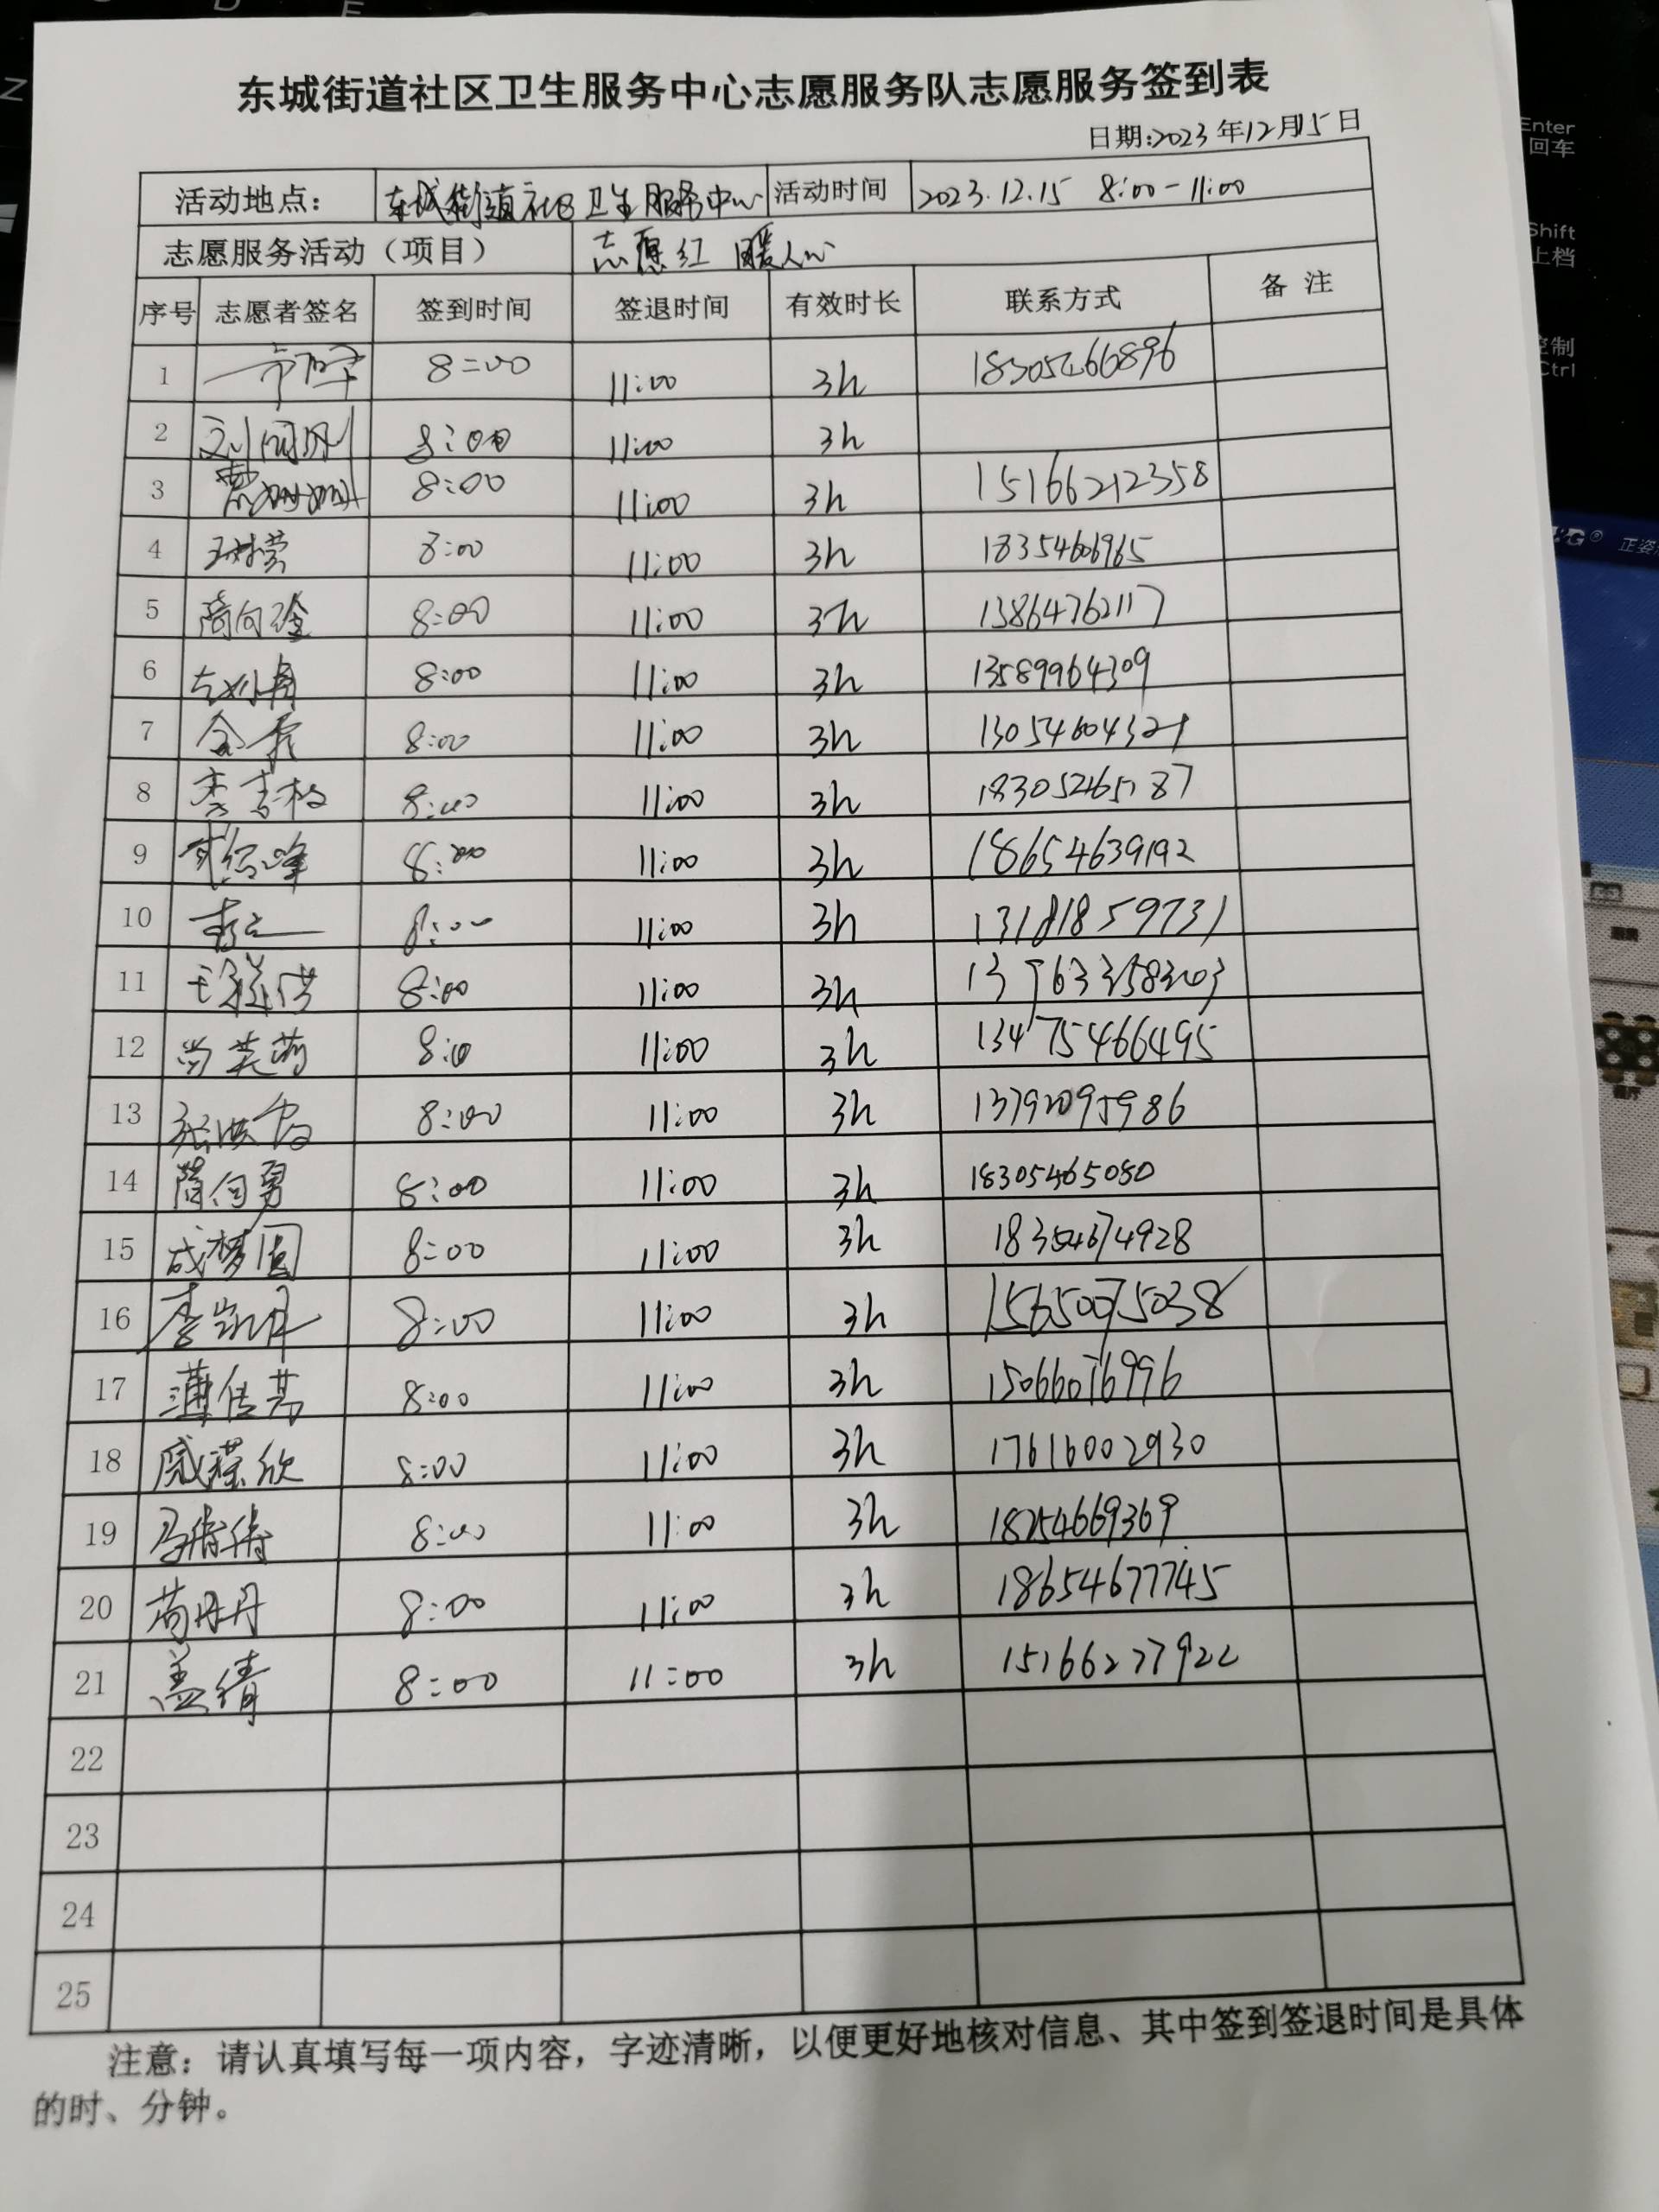 东城街道社区卫生服务中心志愿服务队志愿服务签到表
日期:2023年12月15日
活动地点: 东城街道社区卫生服务中心 活动时间 2023.12.15 8:00-11:00
志愿服务活动（项目） 志愿红 暖人心
序号 志愿者签名 签到时间 签退时间 有效时长 联系方式 备注
1 8:00 11:00 3h 18305266896
2 8:00 11:00 3h
3 8:00 11:00 3h 15166212358
4 8:00 11:00 3h 18354606965
5 隋向 8:00 11:00 3h 13864762117
6 8:00 11:00 3h 13589964309
7 8:00 11:00 3h 13054604321
8 李吉枝 8:00 11:00 3h
9 8:00 11:00 3h 18654639192
10 8:00 11:00 3h 13181859731
11 8:00 11:00 3h
12 尚英 8:00 11:00 3h
13 8:00 11:00 3h
14 隋向勇 8:00 11:00 3h 18305465080
15 成梦圆 8:00 11:00 3h 18354674928
16 李 8:00 11:00 3h 15650075038
17 薄传 8:00 11:00 3h 15066076996
18 8:00 11:00 3h 17616002930
19 马倩倩 8:00 11:00 3h 18254669369
20 苟丹丹 8:00 11:00 3h 18654677745
21 盖绪 8:00 11:00 3h 15166277922
22
23
24
25
注意：请认真填写每一项内容，字迹清晰，以便更好地核对信息、其中签到签退时间是具体
的时、分钟。
Enter
回车
Shift
上档
控制
Ctrl